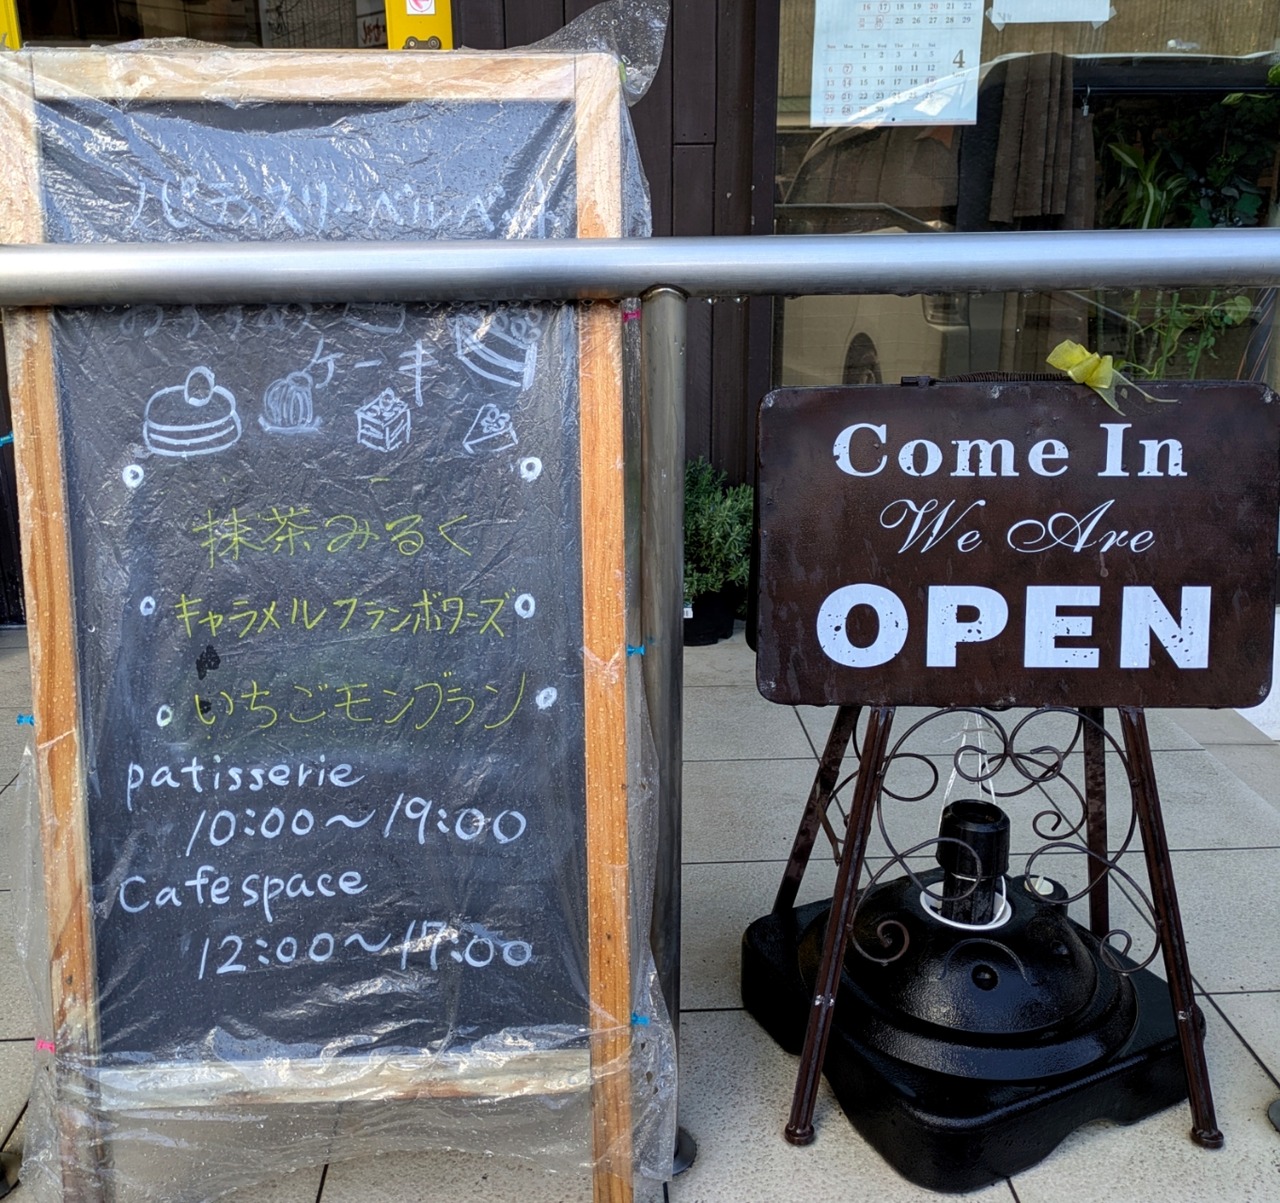 パティスリーベルベット
ケーキ
抹茶みるく
キャラメルフランボワーズ
いちごモンブラン
patisserie
10:00～19:00
Cafe space
12:00～17:00
Come In
We Are
OPEN
4